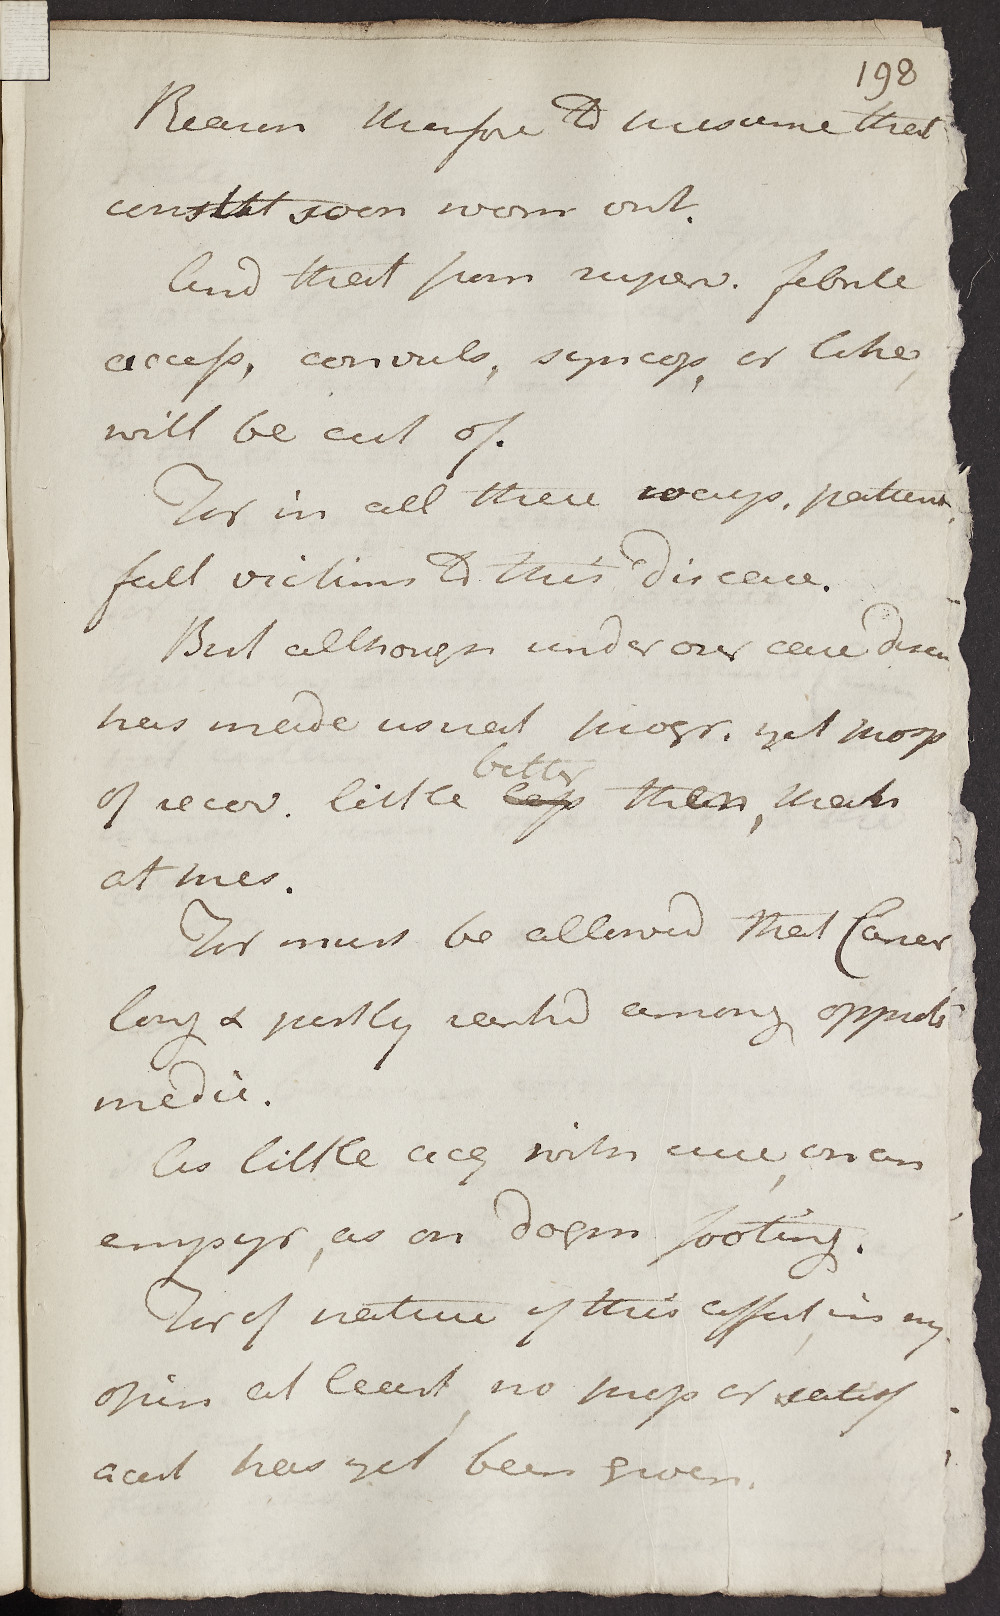 198
Reason therfore to presume that
constit soon worn out.
And that from superv. febrile
access, convuls, syncop, or like,
will be cut of.
For in all these ways. patient,
fall victims to this disease.
But although under our care disea
has made usual progr. yet prosp
of recov. little better less then, than
at pres.
For must be allowed that Cancer
long & justly rankd among opprob
medic.
As little acq with cure, on an
empyr, as on dogm footing.
For of nature of this affect, in my
opin at least, no prop or satisf
acct has yet been given.